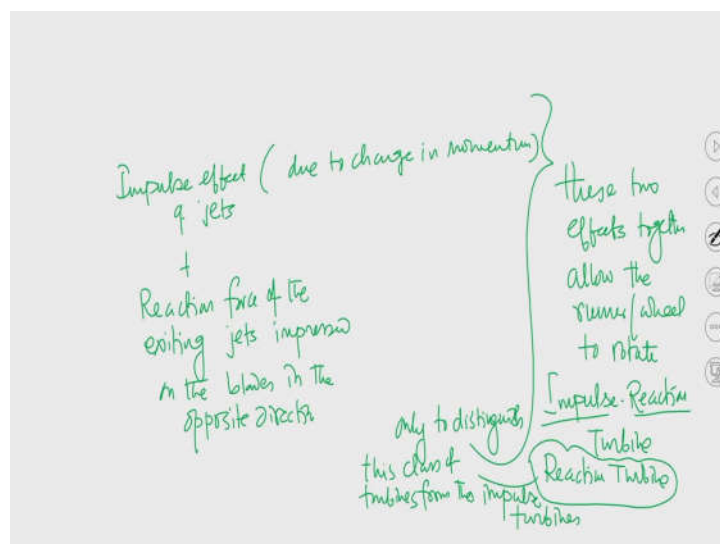 Impulse effect ( due to change in momentum)
of jets
+
Reaction force of the
exiting jets impressed
on the blades in the
opposite direction
these two
effects together
allow the
runner/wheel
to rotate
Impulse-Reaction
Turbine
Reaction Turbine
only to distinguish
this class of
turbines from the impulse
turbines